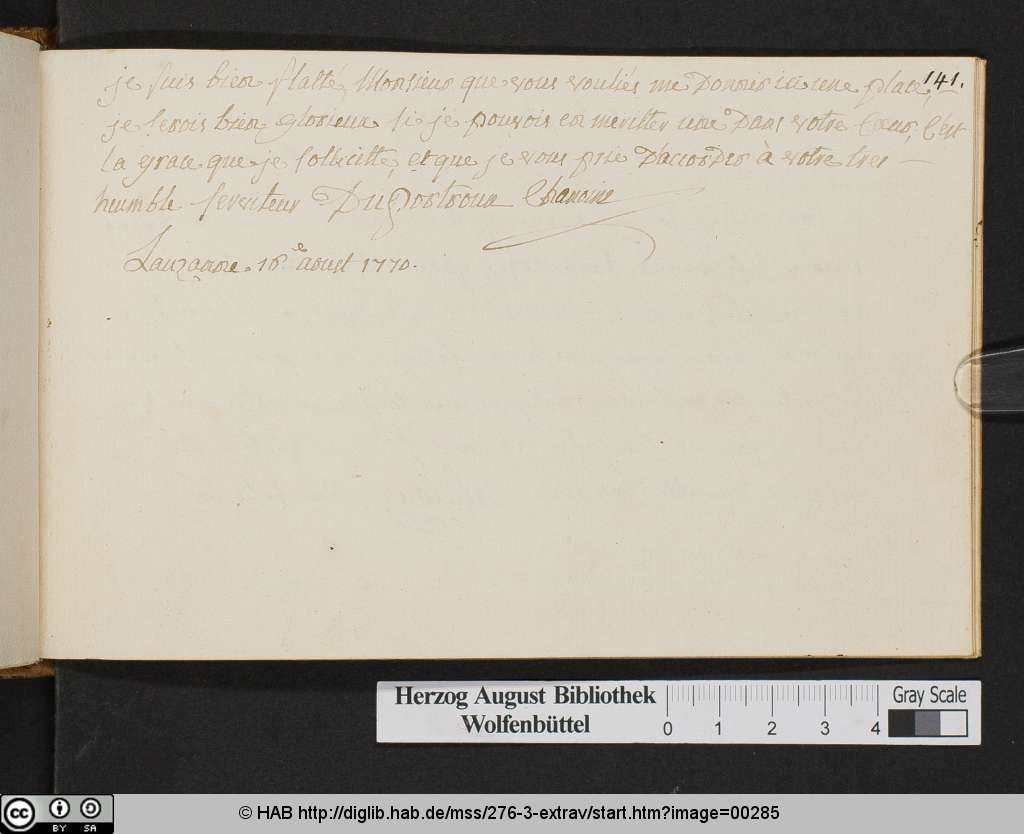 141.
je suis bien flatté, Monsieur que vous vouliés me Donner ici une place,
je serois bien glorieux si je pouvois en meritter une Dans votre Cœur, C'est
la grace que je sollicitte, et que je vous prie D'accorder à votre tres
humble serviteur Chanoine
Lauzanne. 16e aoust 1770.
Herzog August Bibliothek
Wolfenbüttel
0 1 2 3 4
Gray Scale
cc BY SA
© HAB http://diglib.hab.de/mss/276-3-extrav/start.htm?image=00285